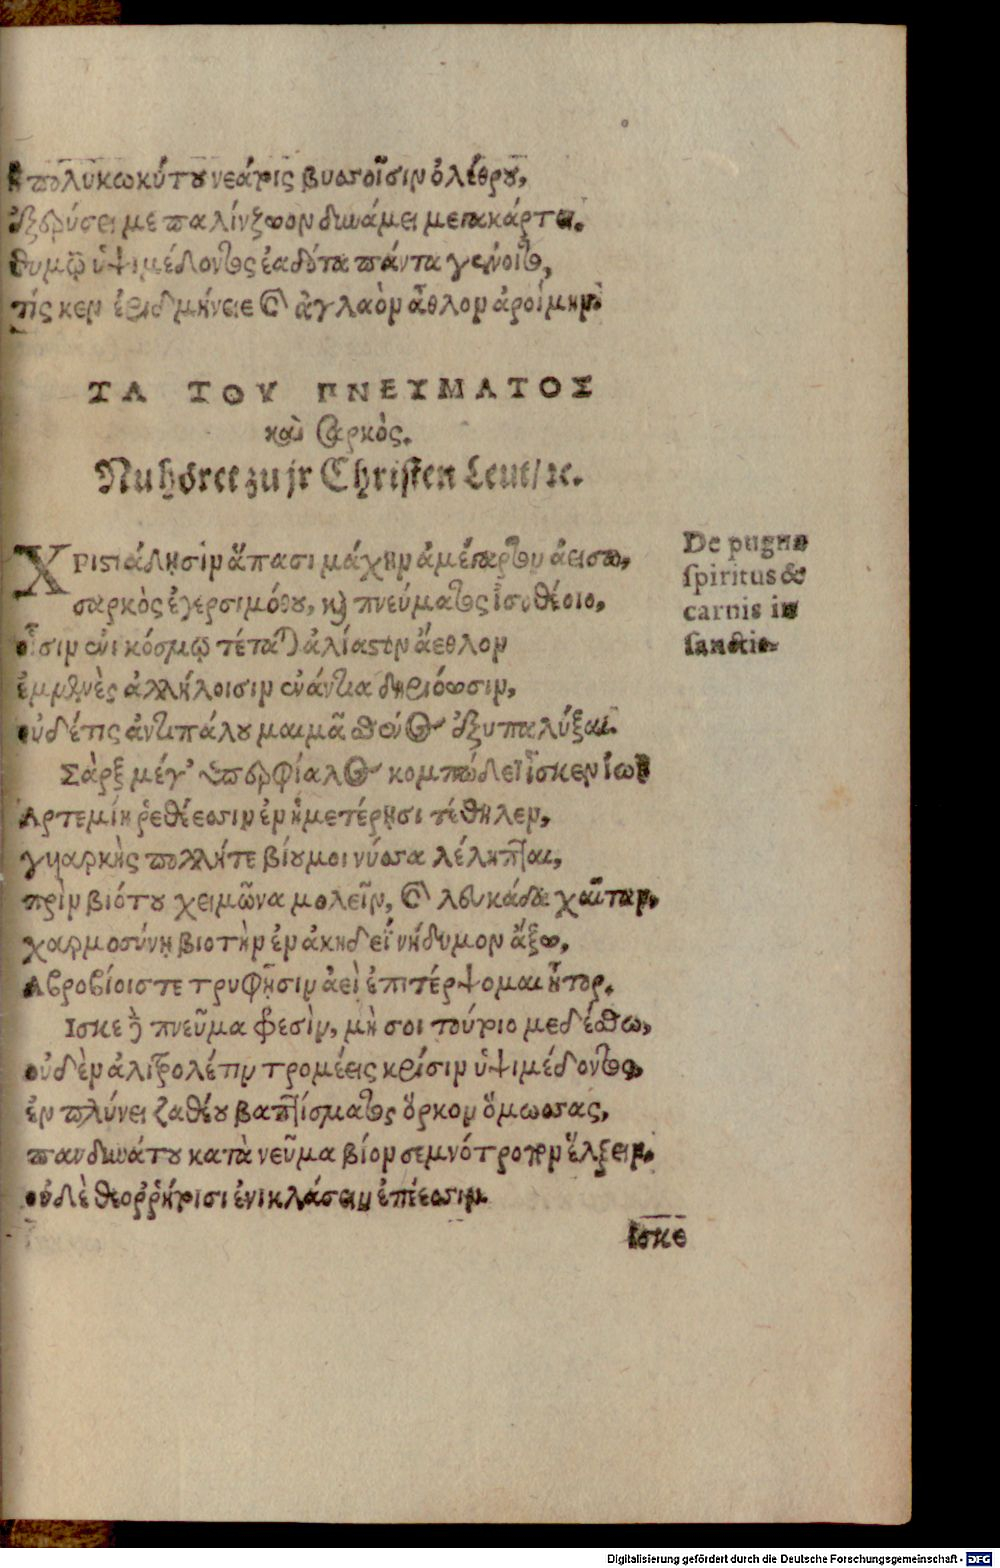 πολυκωκύτου νεάτοις βυσσοῖσιν ὀλέθρου,
ἐξερύσει με παλίνζωον δυνάμει μετακάρτει.
θυμῷ ὑψιμέδοντος ἑαδότα πάντα γένοιτο,
τίς κεν ἐριδμήνειε καὶ ἀγλαὸν ἆθλον ἀροίμην.
ΤΑ ΤΟΥ ΠΝΕΥΜΑΤΟΣ
καὶ σαρκὸς.
Nu höret zu jr Christen Leut/ ꝛc.
ΧΡιστιάδῃσιν ἅπασι μάχην ἀμέγαρτον ἀείσω,
σαρκὸς ἐγερσιμόθου, καὶ πνεύματος ἰσοθέοιο,
οἷσιν ἐνὶ κόσμῳ τέταται ἀλίαστον ἄεθλον
ἐμμενὲς ἀλλήλοισιν ἐνάντια δηριόωσιν,
οὐδέτις ἀντιπάλου μαιμᾶ σθένος ἐξυπαλύξαι.
Σὰρξ μέγ' ὑπερφίαλος κομπώδεϊ ἴσκεν ἰωῇ
Ἀρτεμίη ῥεθέεσσιν ἐν ἡμετέρῃσι τέθηλεν,
γυιαρκὴς πολλήτε βίου μοι νύσσα λέλειπται,
πρὶν βιότου χειμῶνα μολεῖν, καὶ λευκάδα χαίταν,
χαρμοσύνῃ βιοτὴν ἐν ἀκηδεῖ νήδυμον ἄξω,
Ἁβροβίοιστε τρυφῇσιν ἀεὶ ἐπιτέρψομαι ἦτορ.
Ἴσκε δὲ πνεῦμα φεσὶν, μὴ σοι τούριο μεδέσθω,
οὐδὲν ἀλιτρολέτην τρομέεις κρίσιν ὑψιμέδοντος,
ἐν πλύνει ζαθέου βαπτίσματος ὅρκον ὄμωσσας,
πανδυνάτου κατὰ νεῦμα βίον σεμνότροπον ἕλξειν.
οὐδὲ θεορρήτοισι ἐνικλάσειν ἐπέεσσιν.
Ἴσκε
De pugna
spiritus &
carnis in
sanctis.
Digitalisierung gefördert durch die Deutsche Forschungsgemeinschaft - DFG